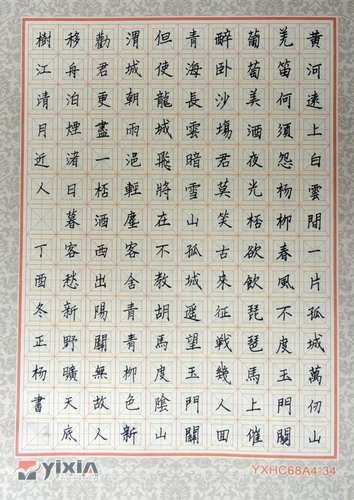 黄河遠上白雲間一片孤城萬仞山
羌笛何須怨杨柳春風不度玉門關
葡萄美酒夜光桮欲飲琵琶馬上催
醉卧沙塲君莫笑古來征戰幾人回
青海長雲暗雪山孤城遥望玉門關
但使龍城飛將在不教胡馬度陰山
渭城朝雨浥輕塵客舍青青柳色新
勸君更盡一桮酒西出陽關無故人
移舟泊煙渚日暮客愁新野曠天底
樹江清月近人 丁酉冬正杨書
yixin
YXHC68A4-34